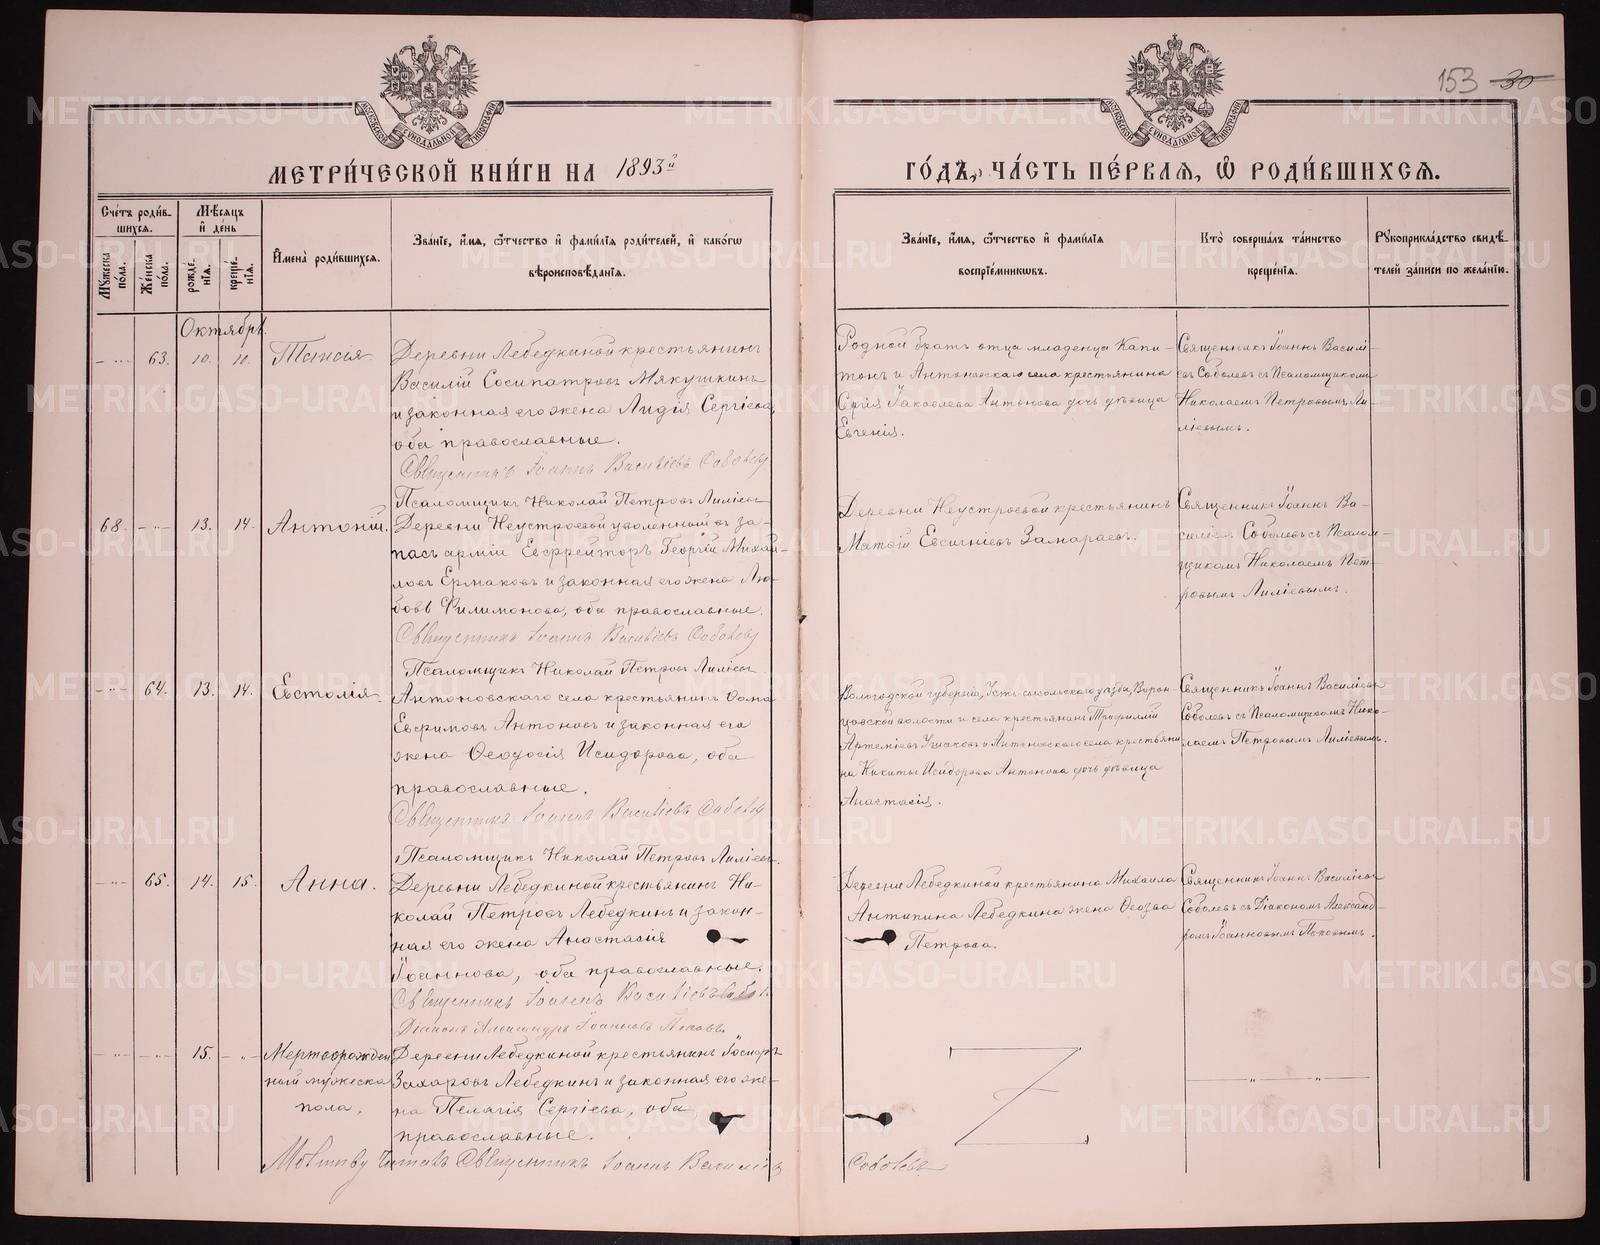 153 30
МЕТРИ́ЧЕСКОЙ КНИ́ГИ НА 1893й
ГО́ДЪ, ЧА́СТЬ ПЕ́РВАЯ, Ѡ҆ РОДИ́ВШИХСЯ.
Сче́тъ роди́в-
шихся.
Мꙋ́жеска по́ла.
Же́нска по́ла.
Мѣ́сяцъ
и҆ де́нь
рожде́нїя.
креще́нїя.
И҆мена̀ роди́вшихся.
Зва́нїе, и҆́мя, ѻ҆́тчество и҆ фами́лїя роди́телей, и҆ како́гѡ
вѣроисповѣ́данїя.
Зва́нїе, и҆́мя, ѻ҆́тчество и҆ фами́лїя
воспрїе́мникѡвъ.
Кто̀ соверша́лъ та́инство
креще́нїя.
Рꙋкоприкла́дство свидѣ́-
телей за́писи по жела́нїю.
Октябрь.
63. 10. 11. Таисія
Деревни Лебедкиной крестьянинъ
Василій Сосипатровъ Мякушкинъ
и законная его жена Лидія Сергіева,
оба православные.
Священникъ Іоаннъ Василіевъ Соболевъ
Псаломщикъ Николай Петровъ Лиліевъ
Родной братъ отца младенца Капи-
тонъ и Антоновскаго села крестьянина
Сергія Іаковлева Антонова дочь девица
Евгенія.
Священникъ Іоаннъ Василі-
евъ Соболевъ съ Псаломщикомъ
Николаемъ Петровымъ Ли-
ліевымъ.
68. 13. 14. Антоній.
Деревни Неустроевой уволенный въ за-
пасъ арміи Ефрейторъ Георгій Михай-
ловъ Ермаковъ и законная его жена Лю-
бовь Филимонова, оба православные.
Священникъ Іоаннъ Василіевъ Соболевъ
Псаломщикъ Николай Петровъ Лиліевъ
Деревни Неустроевой крестьянинъ
Матѳій Евсигніевъ Замараевъ.
Священникъ Іоаннъ Ва-
силіевъ Соболевъ съ Псалом-
щикомъ Николаемъ Пет-
ровымъ Лиліевымъ.
64. 13. 14. Евстолія.
Антоновскаго села крестьянинъ Ѳома
Евфимовъ Антоновъ и законная его
жена Ѳеодосія Исидорова, оба
православные.
Священникъ Іоаннъ Василіевъ Соболевъ
Псаломщикъ Николай Петровъ Лиліевъ.
Вологодской губерніи, Усть-сысольскаго уѣзда, Ворон-
цовской волости и села крестьянинъ Трифиллій
Артеміевъ Ушаковъ и Антоновскаго села крестьяни-
на Никиты Исидорова Антонова дочь девица
Анастасія.
Священникъ Іоаннъ Василіевъ
Соболевъ съ Псаломщикомъ Нико-
лаемъ Петровымъ Лиліевымъ.
65. 14. 15. Анна.
Деревни Лебедкиной крестьянинъ Ни-
колай Петровъ Лебедкинъ и закон-
ная его жена Анастасія
Іоаннова, оба православные.
Священникъ Іоаннъ Василіевъ Собол.
Діаконъ Александръ Іоанновъ Поповъ.
Деревни Лебедкиной крестьянина Михаила
Антипина Лебедкина жена
Петрова.
Священникъ Іоаннъ Василіевъ
Соболевъ съ Діакономъ Александ-
ромъ Іоанновымъ Поповымъ.
15. Мертворожден
ный мужеска
пола.
Деревни Лебедкиной крестьянинъ
Захаровъ Лебедкинъ и законная его же-
на Пелагія Сергіева, оба
православные.
Молитву читалъ Священникъ Іоаннъ Василіевъ
Соболевъ
METRIKI.GASO-URAL.RU